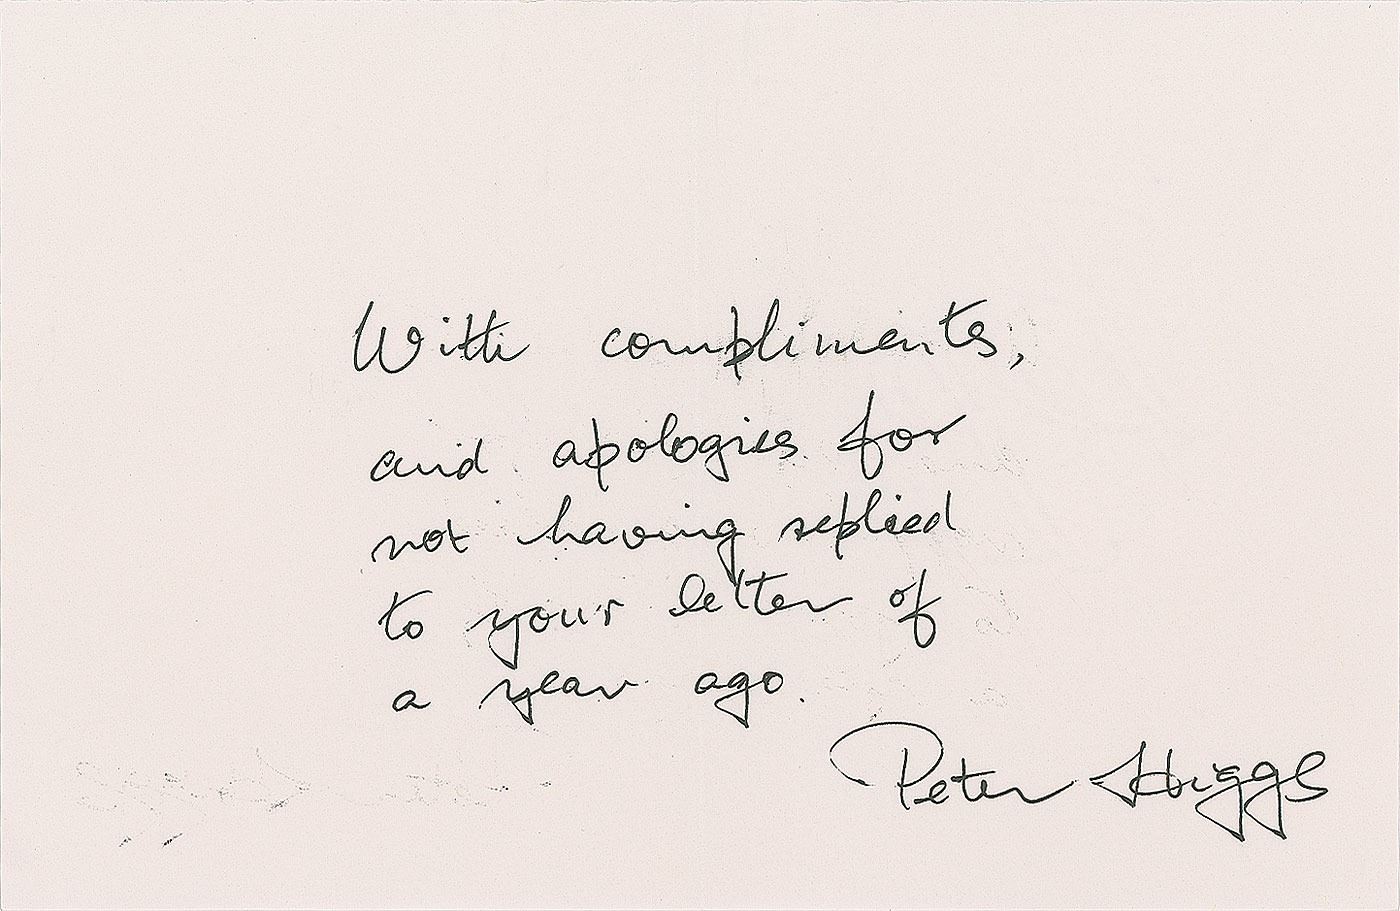 With compliments,
and apologies for
not having replied
to your letter of
a year ago.
Peter Higgs